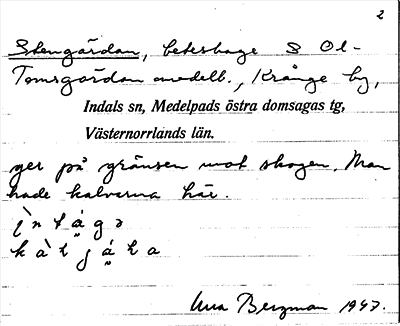 2
Stengärdan, beteshage S Ol-
Tomsgårdan omedelb., Krånge by,
Indals sn, Medelpads östra domsagas tg,
Västernorrlands län.
ger på gränsen mot skogen. Man
hade kalvarna här.
Una Bergman 1947.